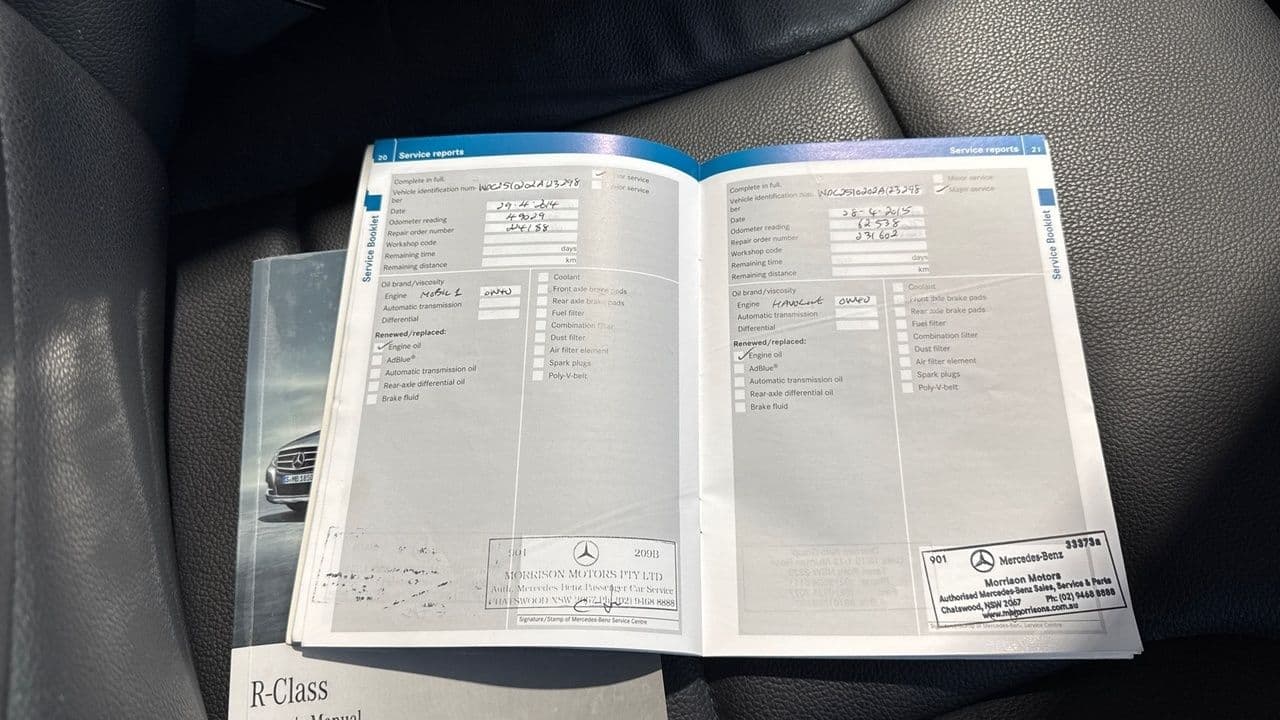 20 Service reports
Complete in full.
Vehicle identification num-
ber
WDC2510202A123298
service
service
Date 29-4-2014
Odometer reading 49029
Repair order number 224188
Workshop code
Remaining time days
Remaining distance km
Service Booklet
Oil brand/viscosity
Engine MOBIL 1 0W40
Automatic transmission
Differential
Renewed/replaced:
Engine oil
AdBlue®
Automatic transmission oil
Rear-axle differential oil
Brake fluid
Coolant
Front axle brake pads
Rear axle brake pads
Fuel filter
Combination filter
Dust filter
Air filter element
Spark plugs
Poly-V-belt
901 209B
MORRISON MOTORS PTY LTD
Auth. Mercedes Benz Passenger Car Service
CHATSWOOD NSW 2067 Ph: (02) 9468 8888
Signature/Stamp of Mercedes-Benz Service Centre
Service reports 21
Complete in full.
Vehicle identification num-
ber
WDC2510202A123298
Minor service
Major service
Date 28-4-2015
Odometer reading 62538
Repair order number 231602
Workshop code
Remaining time days
Remaining distance km
Service Booklet
Oil brand/viscosity
Engine 0W40
Automatic transmission
Differential
Renewed/replaced:
Engine oil
AdBlue®
Automatic transmission oil
Rear-axle differential oil
Brake fluid
Coolant
Front axle brake pads
Rear axle brake pads
Fuel filter
Combination filter
Dust filter
Air filter element
Spark plugs
Poly-V-belt
901 Mercedes-Benz 33373a
Morrison Motors
Authorised Mercedes-Benz Sales, Service & Parts
Chatswood, NSW 2067 Ph: (02) 9468 8888
www.mbmorrisons.com.au
Signature/Stamp of Mercedes-Benz Service Centre
R-Class
Manual